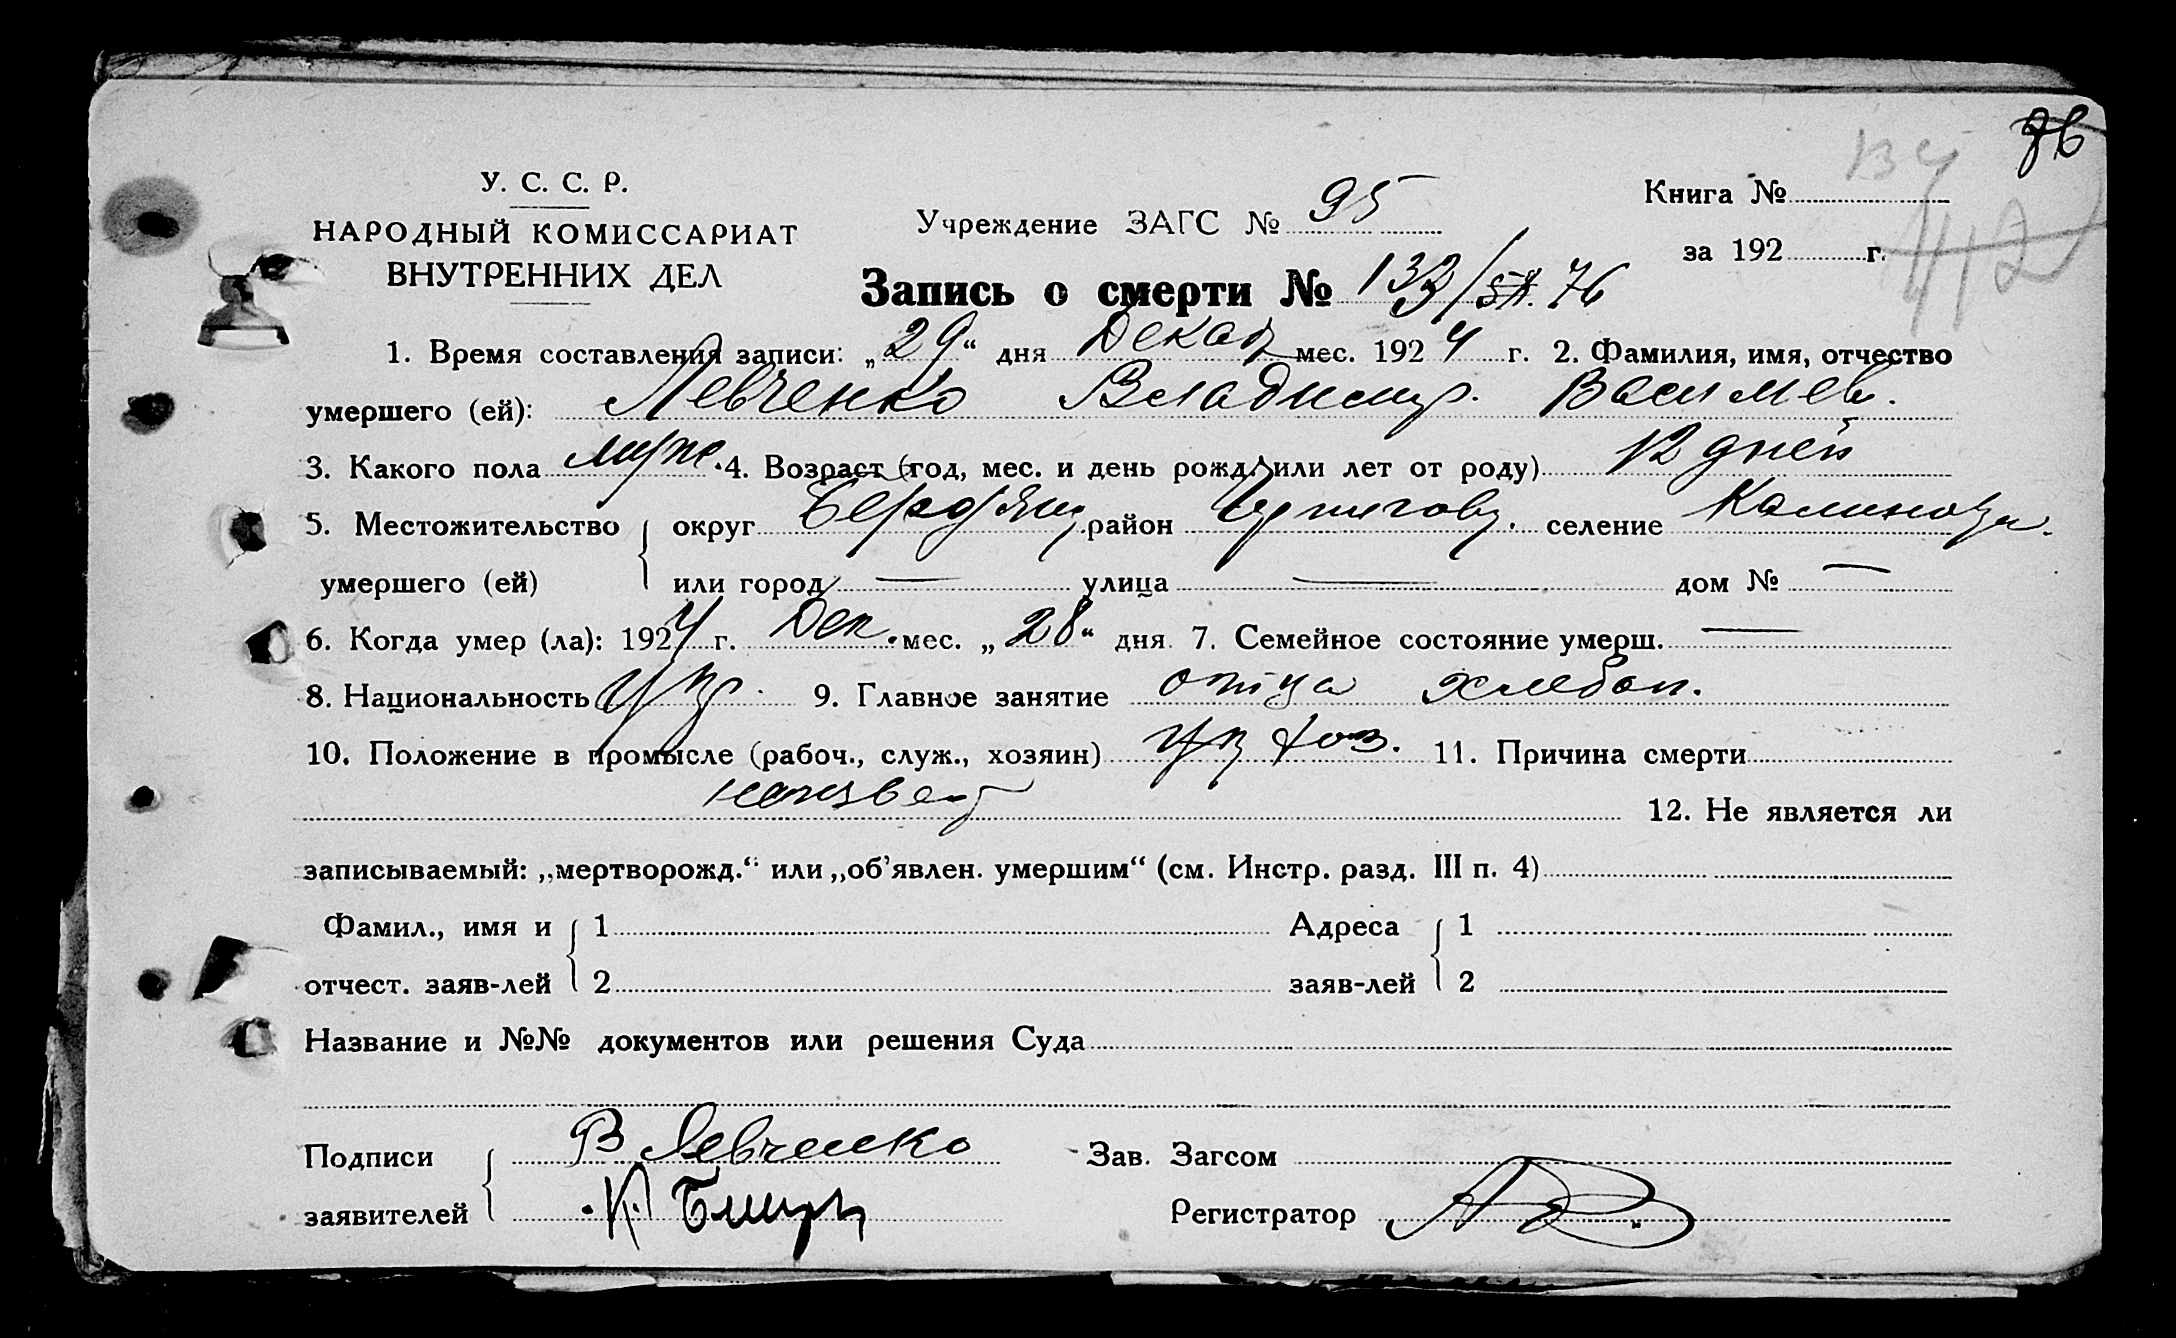 86
134
У. С. С. Р.
Книга №
Учреждение ЗАГС № 95
НАРОДНЫЙ КОМИССАРИАТ
за 192 г. 112
ВНУТРЕННИХ ДЕЛ
Запись о смерти № 133/ 76
1. Время составления записи: „29“ дня Декаб мес. 1924 г. 2. Фамилия, имя, отчество
умершего (ей): Левченко Владимир. Васильев.
3. Какого пола муж. 4. Возраст (год, мес. и день рожд. или лет от роду) 12 дней
5. Местожительство округ Бердянц район селение
умершего (ей) или город — улица — дом № —
6. Когда умер (ла): 1924 г. Дек. мес. „28“ дня 7. Семейное состояние умерш. —
8. Национальность укр. 9. Главное занятие отца хлебоп.
10. Положение в промысле (рабоч., служ., хозяин) хоз. 11. Причина смерти
12. Не является ли
записываемый: „мертворожд.“ или „об’явлен. умершим“ (см. Инстр. разд. III п. 4)
Фамил., имя и 1 Адреса 1
отчест. заяв-лей 2 заяв-лей 2
Название и №№ документов или решения Суда
Подписи В Левченко Зав. Загсом
заявителей К. Регистратор